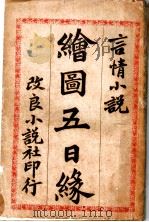 言情小說
繪圖五日緣
改良小說社印行